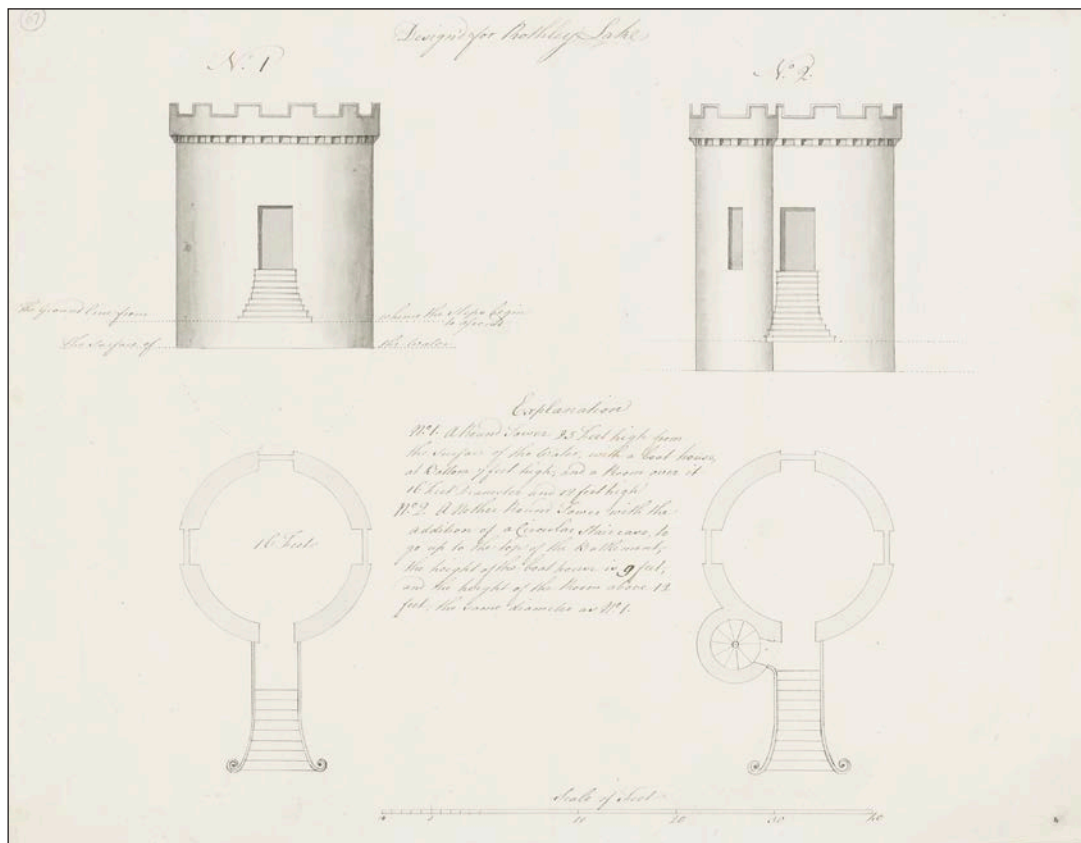 67
Designs for Rothley Lake
No. 1
No. 2.
The Ground line from
where the Steps begin
to ascend
the Surface of
the Water
Explanation
No. 1. A Round Tower 25 feet high from
the Surface of the Water, with a boat house,
at bottom 7 feet high, and a Room over it
16 feet diameter and 12 feet high
No. 2. A Nother Round Tower with the
addition of a Circular Staircase, to
go up to the top of the Battlement,
the height of the boat house is 9 feet,
and the height of the Room above 12
feet, the same diameter as No. 1.
16 feet
Scale of Feet
5
10
20
30
40